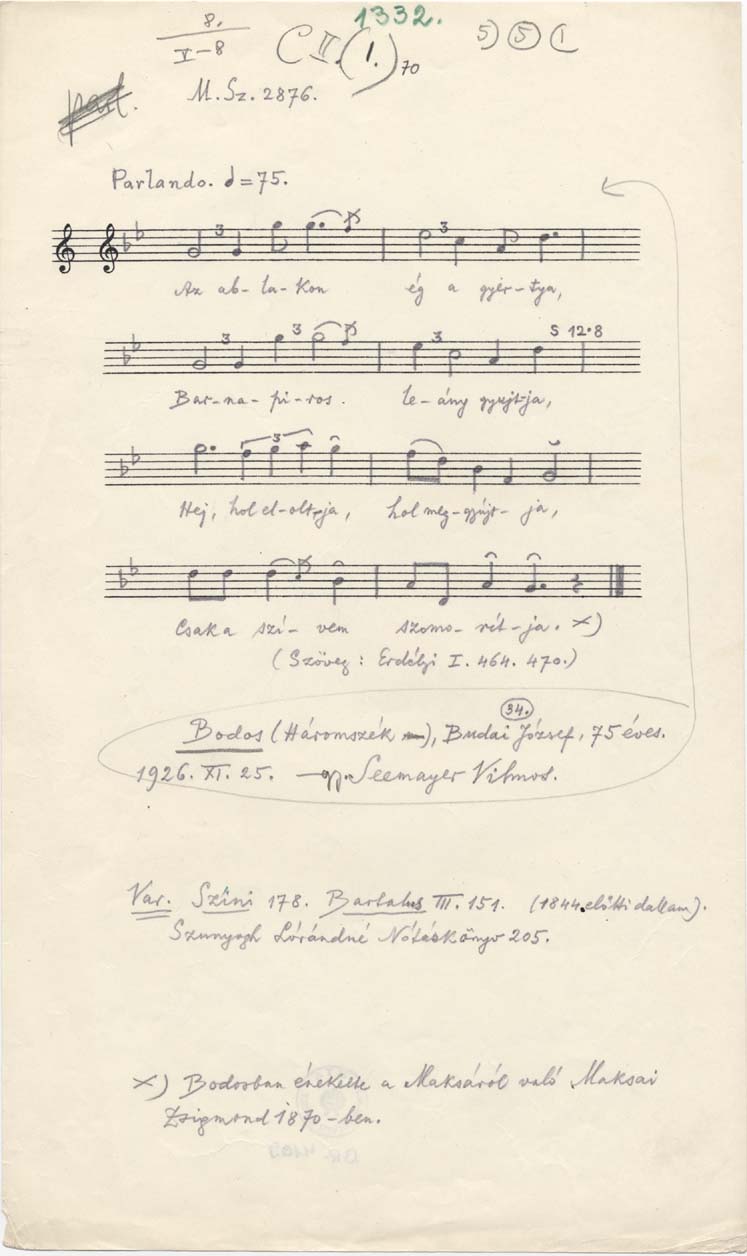 1332.
8.
V-8
C II. (1.) 70
5) (5) (1
M. Sz. 2876.
part.
Parlando. 𝅗𝅥=75.
3 3
Az ab-la-kon ég a gyér-tya,
3 3 3 S 12.8
Bar-na-pi-ros. le-ány gyujt-ja,
3
Hej, hol el-olt-ja, hol meg-gyújt-ja,
Csak a szí-vem szomo-rít-ja. x)
(Szöveg: Erdélyi I. 464. 470.)
34.
Bodos (Háromszék), Budai József, 75 éves.
1926. XI. 25. Seemayer Vilmos.
Var. Színi 178. Bartalus III. 151. (1844. előtti dallam).
Szunyogh Lórándné Nótáskönyv 205.
x) Bodosban énekelte a Maksáról való Maksai
Zsigmond 1870-ben.